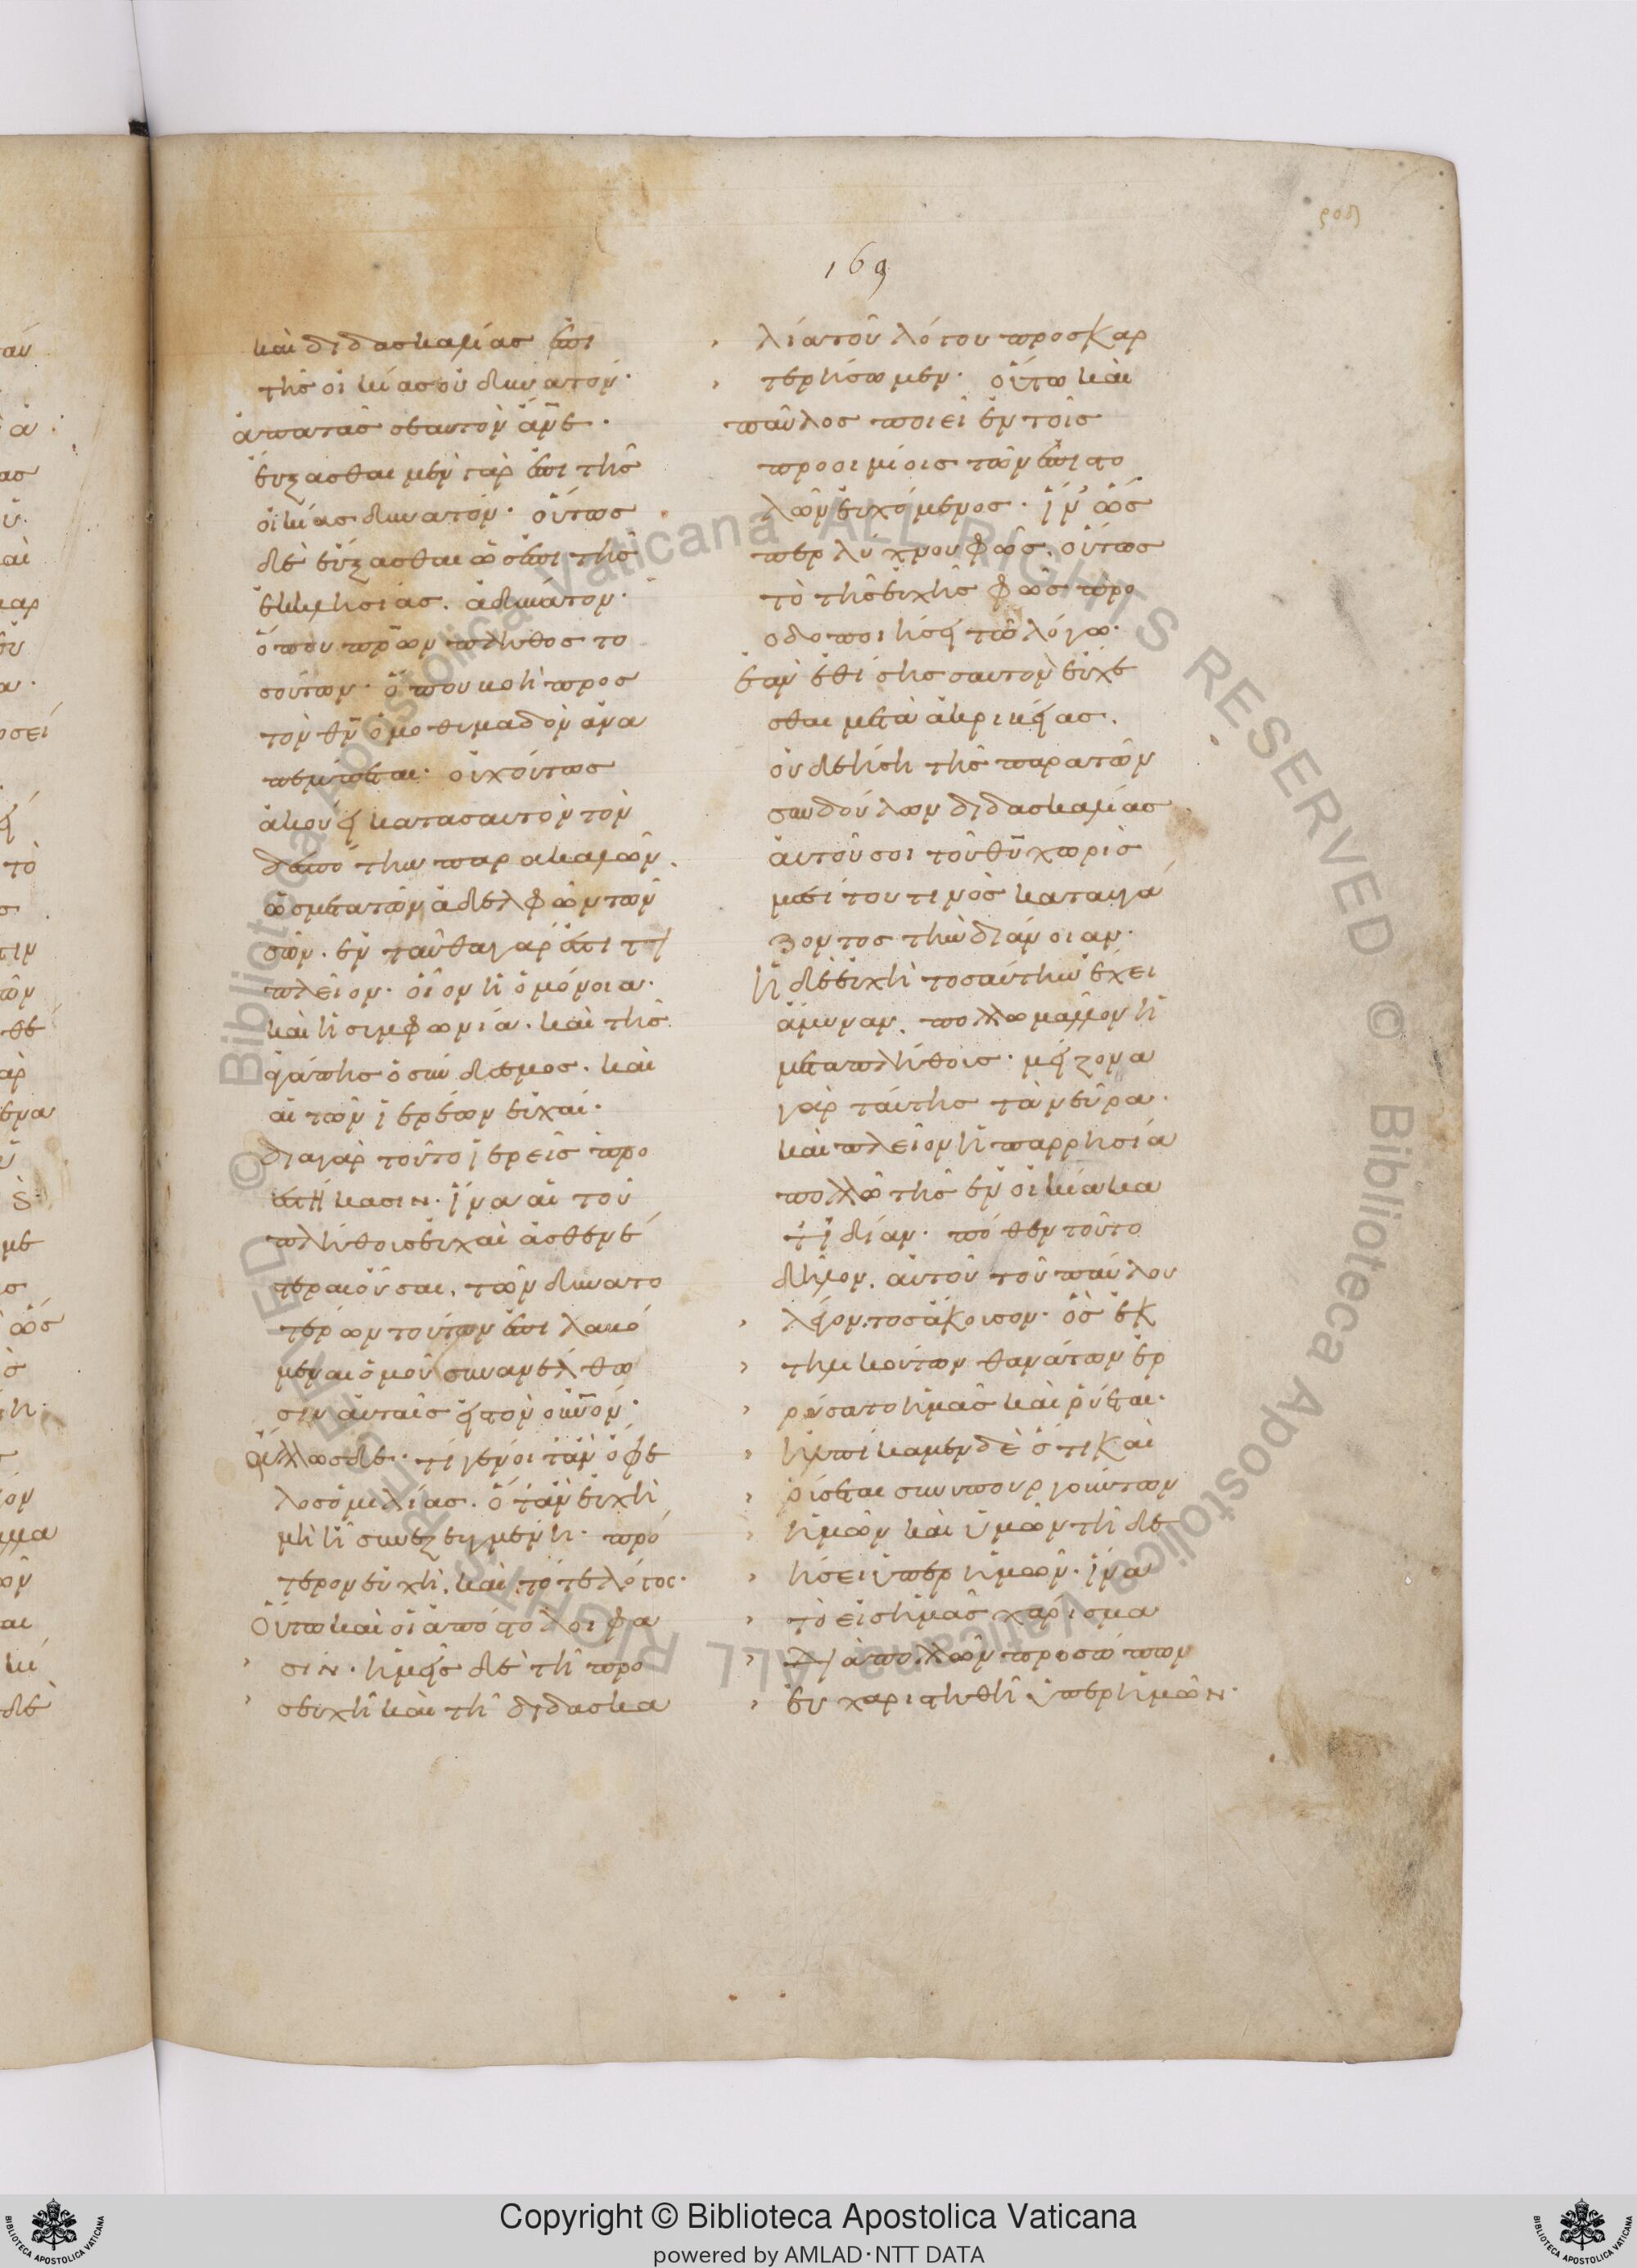 169
καὶ διδασκαλίας ἐπὶ
τῆς οἰκίας οὐ δυνατόν·
ἀπατᾶς σεαυτὸν ἄνε·
εὔξασθαι μὲν γὰρ ἐπὶ τῆς
οἰκίας δυνατόν· οὕτως
δὲ εὔξασθαι ὡς ἐπὶ τῆς
ἐκκλησίας, ἀδύνατον·
ὅπου πρων πλῆθος το
σούτων· ὅπου βοὴ προς
τὸν θν ὁμοθυμαδὸν ἀνα
πέμπεται· οὐχ οὕτως
ἀκούει κατασαυτὸν τὸν
δεσπότην παρακαλῶν.
ὡς μετα τῶν ἀδελφῶν τῶν
σῶν. ἐνταῦθα γάρ ἐστί τι
πλεῖον· οἷον ἡ ὁμόνοια·
καὶ ἡ συμφωνία· καὶ τῆς
ἀγάπης ὁ σύνδεσμος. καὶ
αἱ τῶν ἱερέων εὐχαί·
διαγὰρ τοῦτο ἱερεῖς προ
εστήκασιν· ἵνα αἱ τοῦ
πλήθους εὐχαὶ ἀσθενέ
στεραι οὖσαι, τῶν δυνατο
τέρων τούτων ἐπιλαβό
μεναι ὁμοῦ συνανέλθω
σιν αὐταῖς εἰς τὸν οὐνόν·
ἄλλως δὲ· τί γένοιτ' ἂν ὄφε
λος ὁμιλίας. ὅταν εὐχὴ
μὴ ἦ συνεζευγμένη· πρό
τερον εὐχὴ, καὶ τότε λόγος·
Οὕτω καὶ οἱ ἀπόστολοι φα
σὶν· ἡμεῖς δὲ τῆ προ
σευχῆ καὶ τῆ διδασκα
λία τοῦ λόγου προσκαρ
τερήσωμεν· οὕτω καὶ
παῦλος ποιεῖ ἐν τοῖς
προοιμίοις τῶν ἐπιστο
λῶν εὐχόμενος· ἵν' ὥσ
περ λύχνου φῶς, οὕτως
τὸ τῆς εὐχῆς φῶς προ
οδοποιήσει τῶ λόγω·
ἐὰν ἐθίσης σαυτὸν εὔχε
σθαι μετὰ ἀκριβείας.
οὐ δεήση τῆς παρα τῶν
συνδούλων διδασκαλίας
αὐτοῦ σοι τοῦ θυ χωρὶς
μεσίτου τινὸς καταυγά
ζοντος τὴν διάνοιαν·
ἡ δὲ εὐχὴ τοσαύτην ἔχει
ἄμυναν. πολλω μᾶλλον ἡ
μετα πλήθους· μείζονα
γὰρ ταύτης τὰ νεῦρα·
καὶ πλεῖον ἡ παρρησία
πολλῶ τῆς ἐν οἰκία κα
τιδίαν· πόθεν τοῦτο
δῆλον, αὐτοῦ τοῦ παύλου
λέγοντος ἄκουσον· ὃς ἐκ
τηλικούτων θανάτων ἐρ
ρύσατο ἡμᾶς καὶ ῥύεται·
ἠλπίκαμεν δὲ ὅτι καὶ
ῥύσεται συνυπουργούντων
ἡμῶν καὶ ὑμῶν τῆ δε
ήσει ὑπερ ἡμῶν· ἵνα
τὸ εἰς ἡμᾶς χάρισμα
διὰ πολλῶν προσώπων
εὐχαριστηθῆ ὑπερ ἡμῶν·